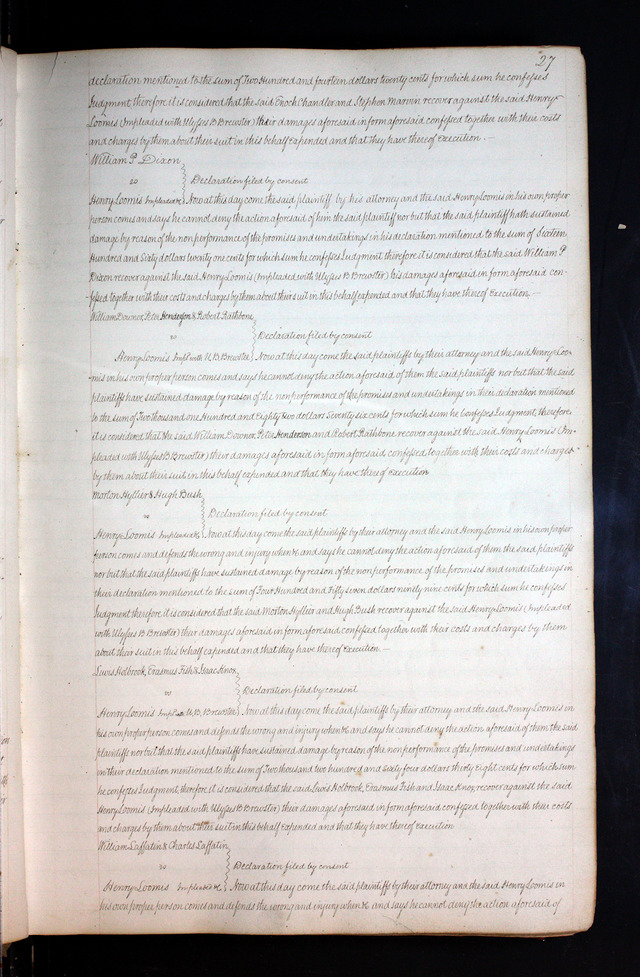 27
declaration mentioned to the sum of Two Hundred and fourteen dollars twenty cents for which sum he confesses
Judgment therefore it is considered that the said Enoch Chandler and Stephen Marvin recover against the said Henry
Loomis (Impleaded with Ulysses B Brewster) their damages aforesaid in form aforesaid confessed together with their costs
and charges by them about their suit in this behalf expended and that they have thereof execution.
William P Dixon
vs
Declaration filed by consent
Henry Loomis Impleaded &c Now at this day come the said plaintiff by his attorney and the said Henry Loomis in his own proper
person comes and says he cannot deny the action aforesaid of him the said plaintiff nor but that the said plaintiff hath sustained
damage by reason of the nonperformance of the promises and undertakings in his declaration mentioned to the sum of Sixteen
Hundred and Sixty dollars twenty one cents for which sum he confesses Judgment therefore it is considered that the said William P
Dixon recover against the said Henry Loomis (Impleaded with Ulysses B Brewster) his damages aforesaid in form aforesaid con-
fessed together with their costs and charges by them about their suit in this behalf expended and that they have thereof Execution
William Downer, Peter Henderson & Robert Rathbone
vs
Declaration filed by consent
Henry Loomis Impl with U. B. Brewster Now at this day come the said plaintiffs by their attorney and the said Henry Loo-
mis in his own proper person comes and says he cannot deny the action aforesaid of them the said plaintiffs nor but that the said
plaintiffs have sustained damage by reason of the nonperformance of the promises and undertakings in their declaration mentioned
to the sum of Two thousand one Hundred and Eighty two dollars Seventy six cents for which sum he Confesses Judgment, therefore
it is considered that the said William Downer, Peter Henderson and Robert Rathbone recover against the said Henry Loomis (Im-
pleaded with Ulysses B Brewster) their damages aforesaid in form aforesaid confessed together with their costs and charges
by them about their suit in this behalf expended and that they have thereof execution
Morton Hyllier & Hugh Bush
vs
Declaration filed by consent
Henry Loomis Impleaded &c Now at this day come the said plaintiffs by their attorney and the said Henry Loomis in his own proper
person comes and defends the wrong and injury when &c and says he cannot deny the action aforesaid of them the said plaintiffs
nor but that the said plaintiffs have sustained damage by reason of the nonperformance of the promises and undertakings in
their declaration mentioned to the sum of Four Hundred and Fifty seven dollars ninety nine cents for which sum he confesses
Judgment therefore it is considered that the said Morton Hyllier and Hugh Bush recover against the said Henry Loomis (Impleaded
with Ulysses B Brewster) their damages aforesaid in form aforesaid confessed together with their costs and charges by them
about their suit in this behalf expended and that they have thereof Execution
Lewis Holbrook, Erasmus Fish & Isaac Knox
vs
Declaration filed by consent
Henry Loomis Impl with U. B. Brewster Now at this day come the said plaintiffs by their attorney and the said Henry Loomis in
his own proper person comes and defends the wrong and injury when &c and says he cannot deny the action aforesaid of them the said
plaintiffs nor but that the said plaintiffs have sustained damage by reason of the nonperformance of the promises and undertakings
in their declaration mentioned to the sum of Two thousand two hundred and sixty four dollars thirty Eight cents for which sum
he confesses Judgment, therefore it is considered that the said Lewis Holbrook, Erasmus Fish and Isaac Knox recover against the said
Henry Loomis (Impleaded with Ulysses B Brewster) their damages aforesaid in form aforesaid confessed together with their costs
and charges by them about their suit in this behalf Expended and that they have thereof Execution
William Laffatin & Charles Laffatin
vs
Declaration filed by consent
Henry Loomis Impleaded &c Now at this day come the said plaintiffs by their attorney and the said Henry Loomis in
his own proper person comes and defends the wrong and injury when &c and says he cannot deny the action aforesaid of